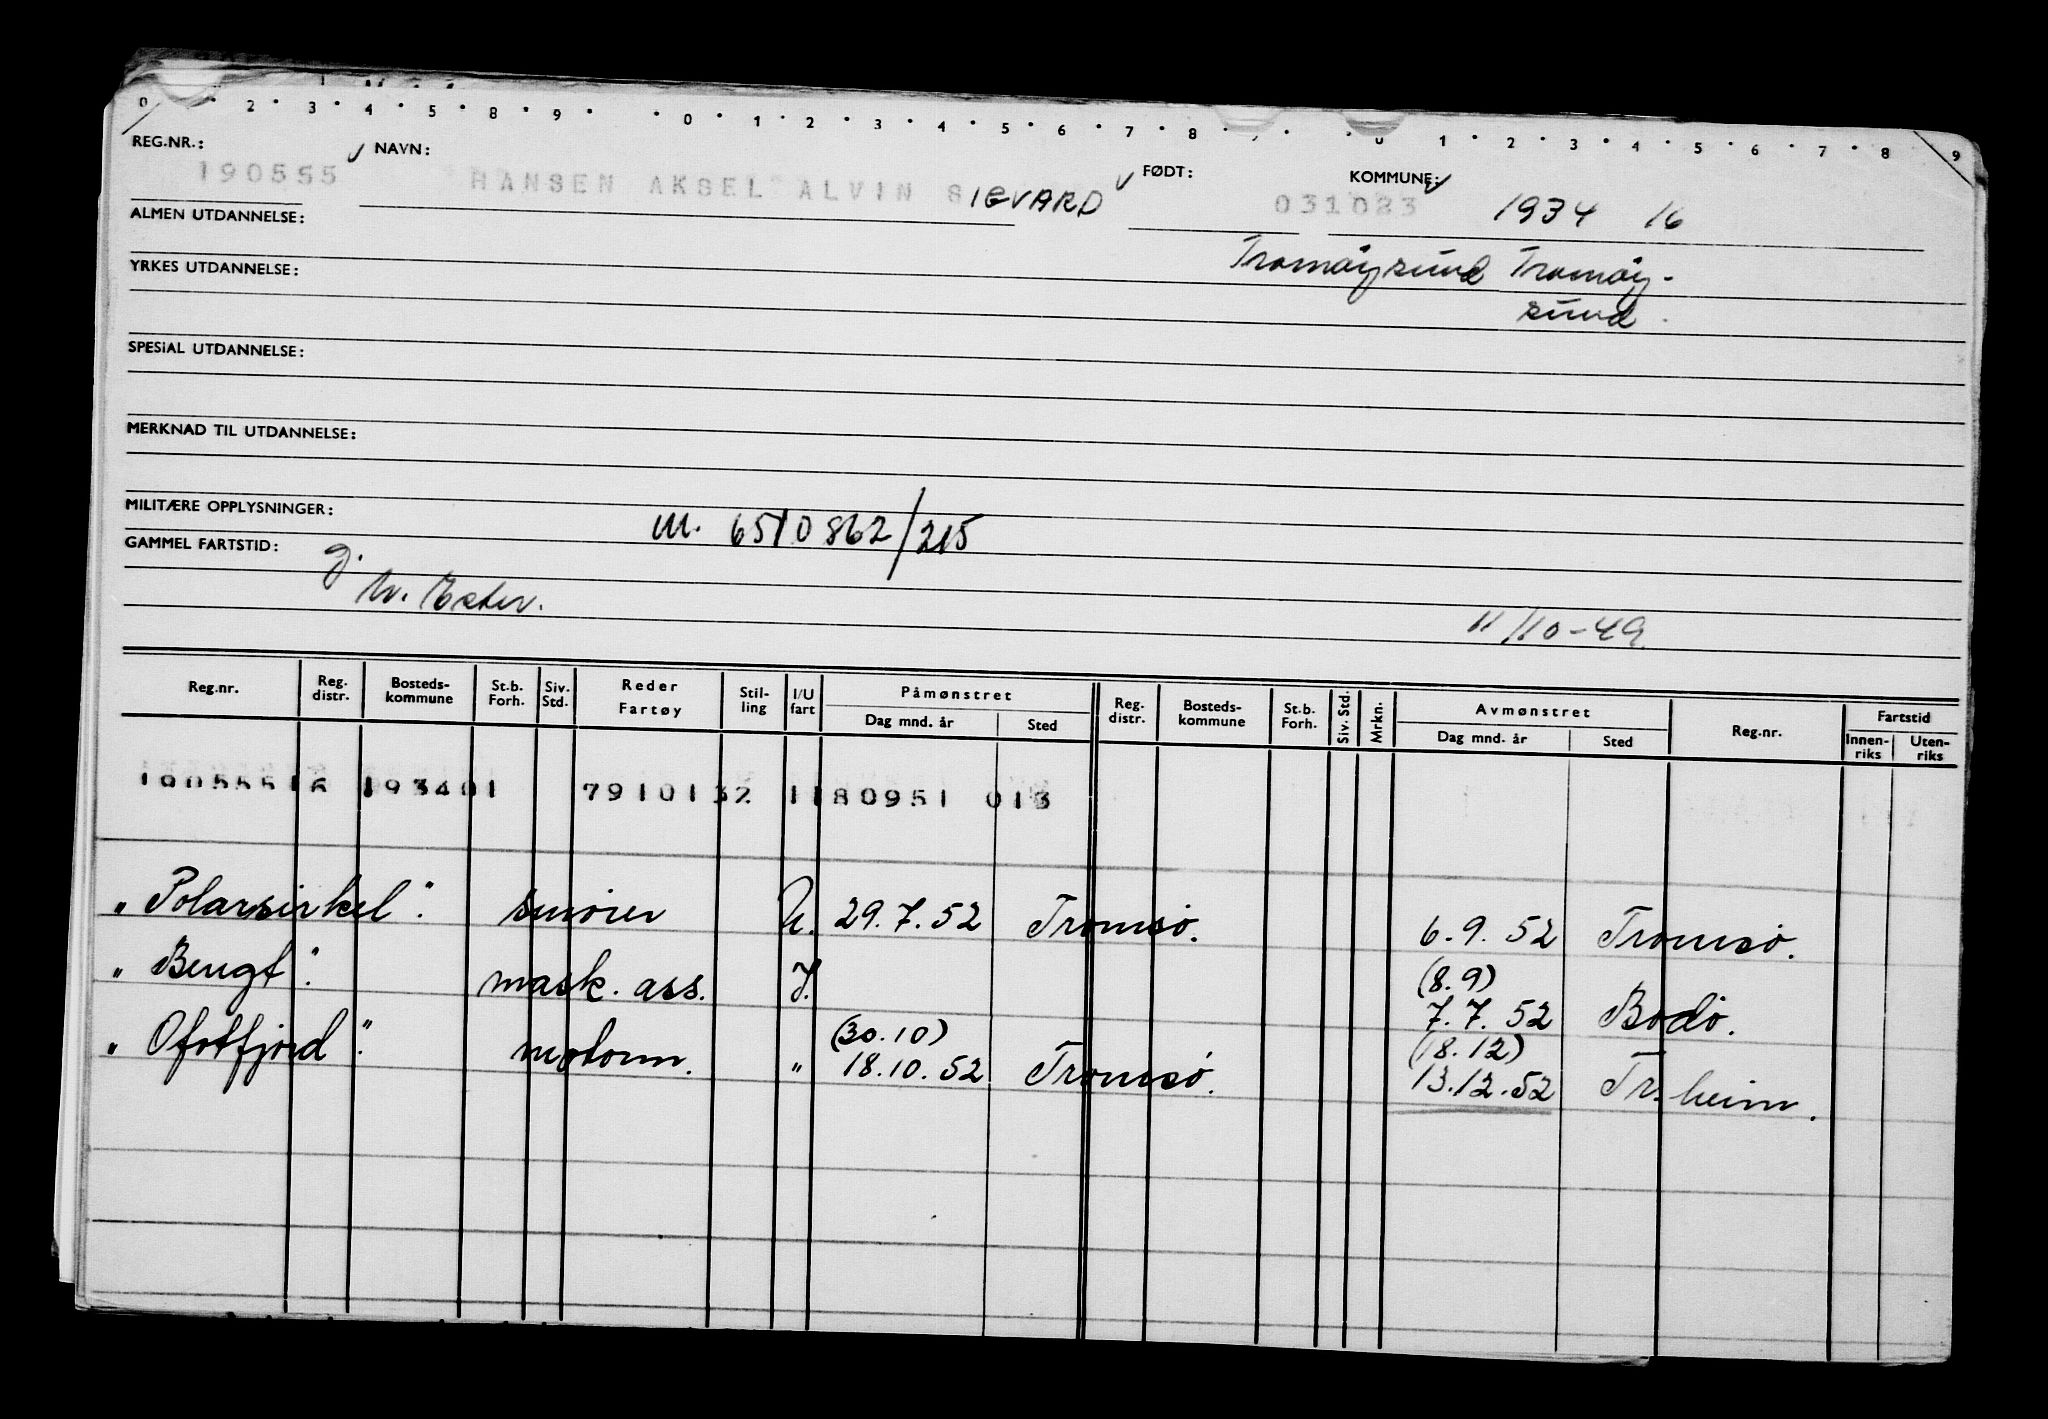 0 · 2 · 3 · 4 · 5 · 8 · 9 · · 0 · 1 · 2 · 3 · 4 · 5 · 6 · 7 · 8 · · · 0 · 1 · 2 · 3 · 4 · 5 · 6 · 7 · 8 9
REG.NR.: NAVN: FØDT: KOMMUNE:
190555 HANSEN AKSEL ALVIN SIGVARD 031023 1934 16
ALMEN UTDANNELSE:
Tromøysund Tromøy-
YRKES UTDANNELSE:
sund.
SPESIAL UTDANNELSE:
MERKNAD TIL UTDANNELSE:
MILITÆRE OPPLYSNINGER: M. 6510862/215
GAMMEL FARTSTID: g.
11/10-49
Reg.nr. Reg. distr. Bosteds-kommune St.b. Forh. Siv. Std. Reder Fartøy Stil-ling I/U fart Påmønstret Dag mnd. år Sted Reg. distr. Bosteds-kommune St.b. Forh. Siv. Std. Mrkn. Avmønstret Dag mnd. år Sted Reg.nr. Fartstid Innen-riks Uten-riks
190555 16 193401 7910132 1180951 013
„Polarsirkel". smører U. 29.7.52 Tromsø. 6.9.52 Tromsø.
(8.9)
„Bengt". mask. ass. I. 7.7.52 Bodø.
(30.10) (18.12)
„Ofotfjord". motorm. " 18.10.52 Tromsø. 13.12.52 Tr.heim.